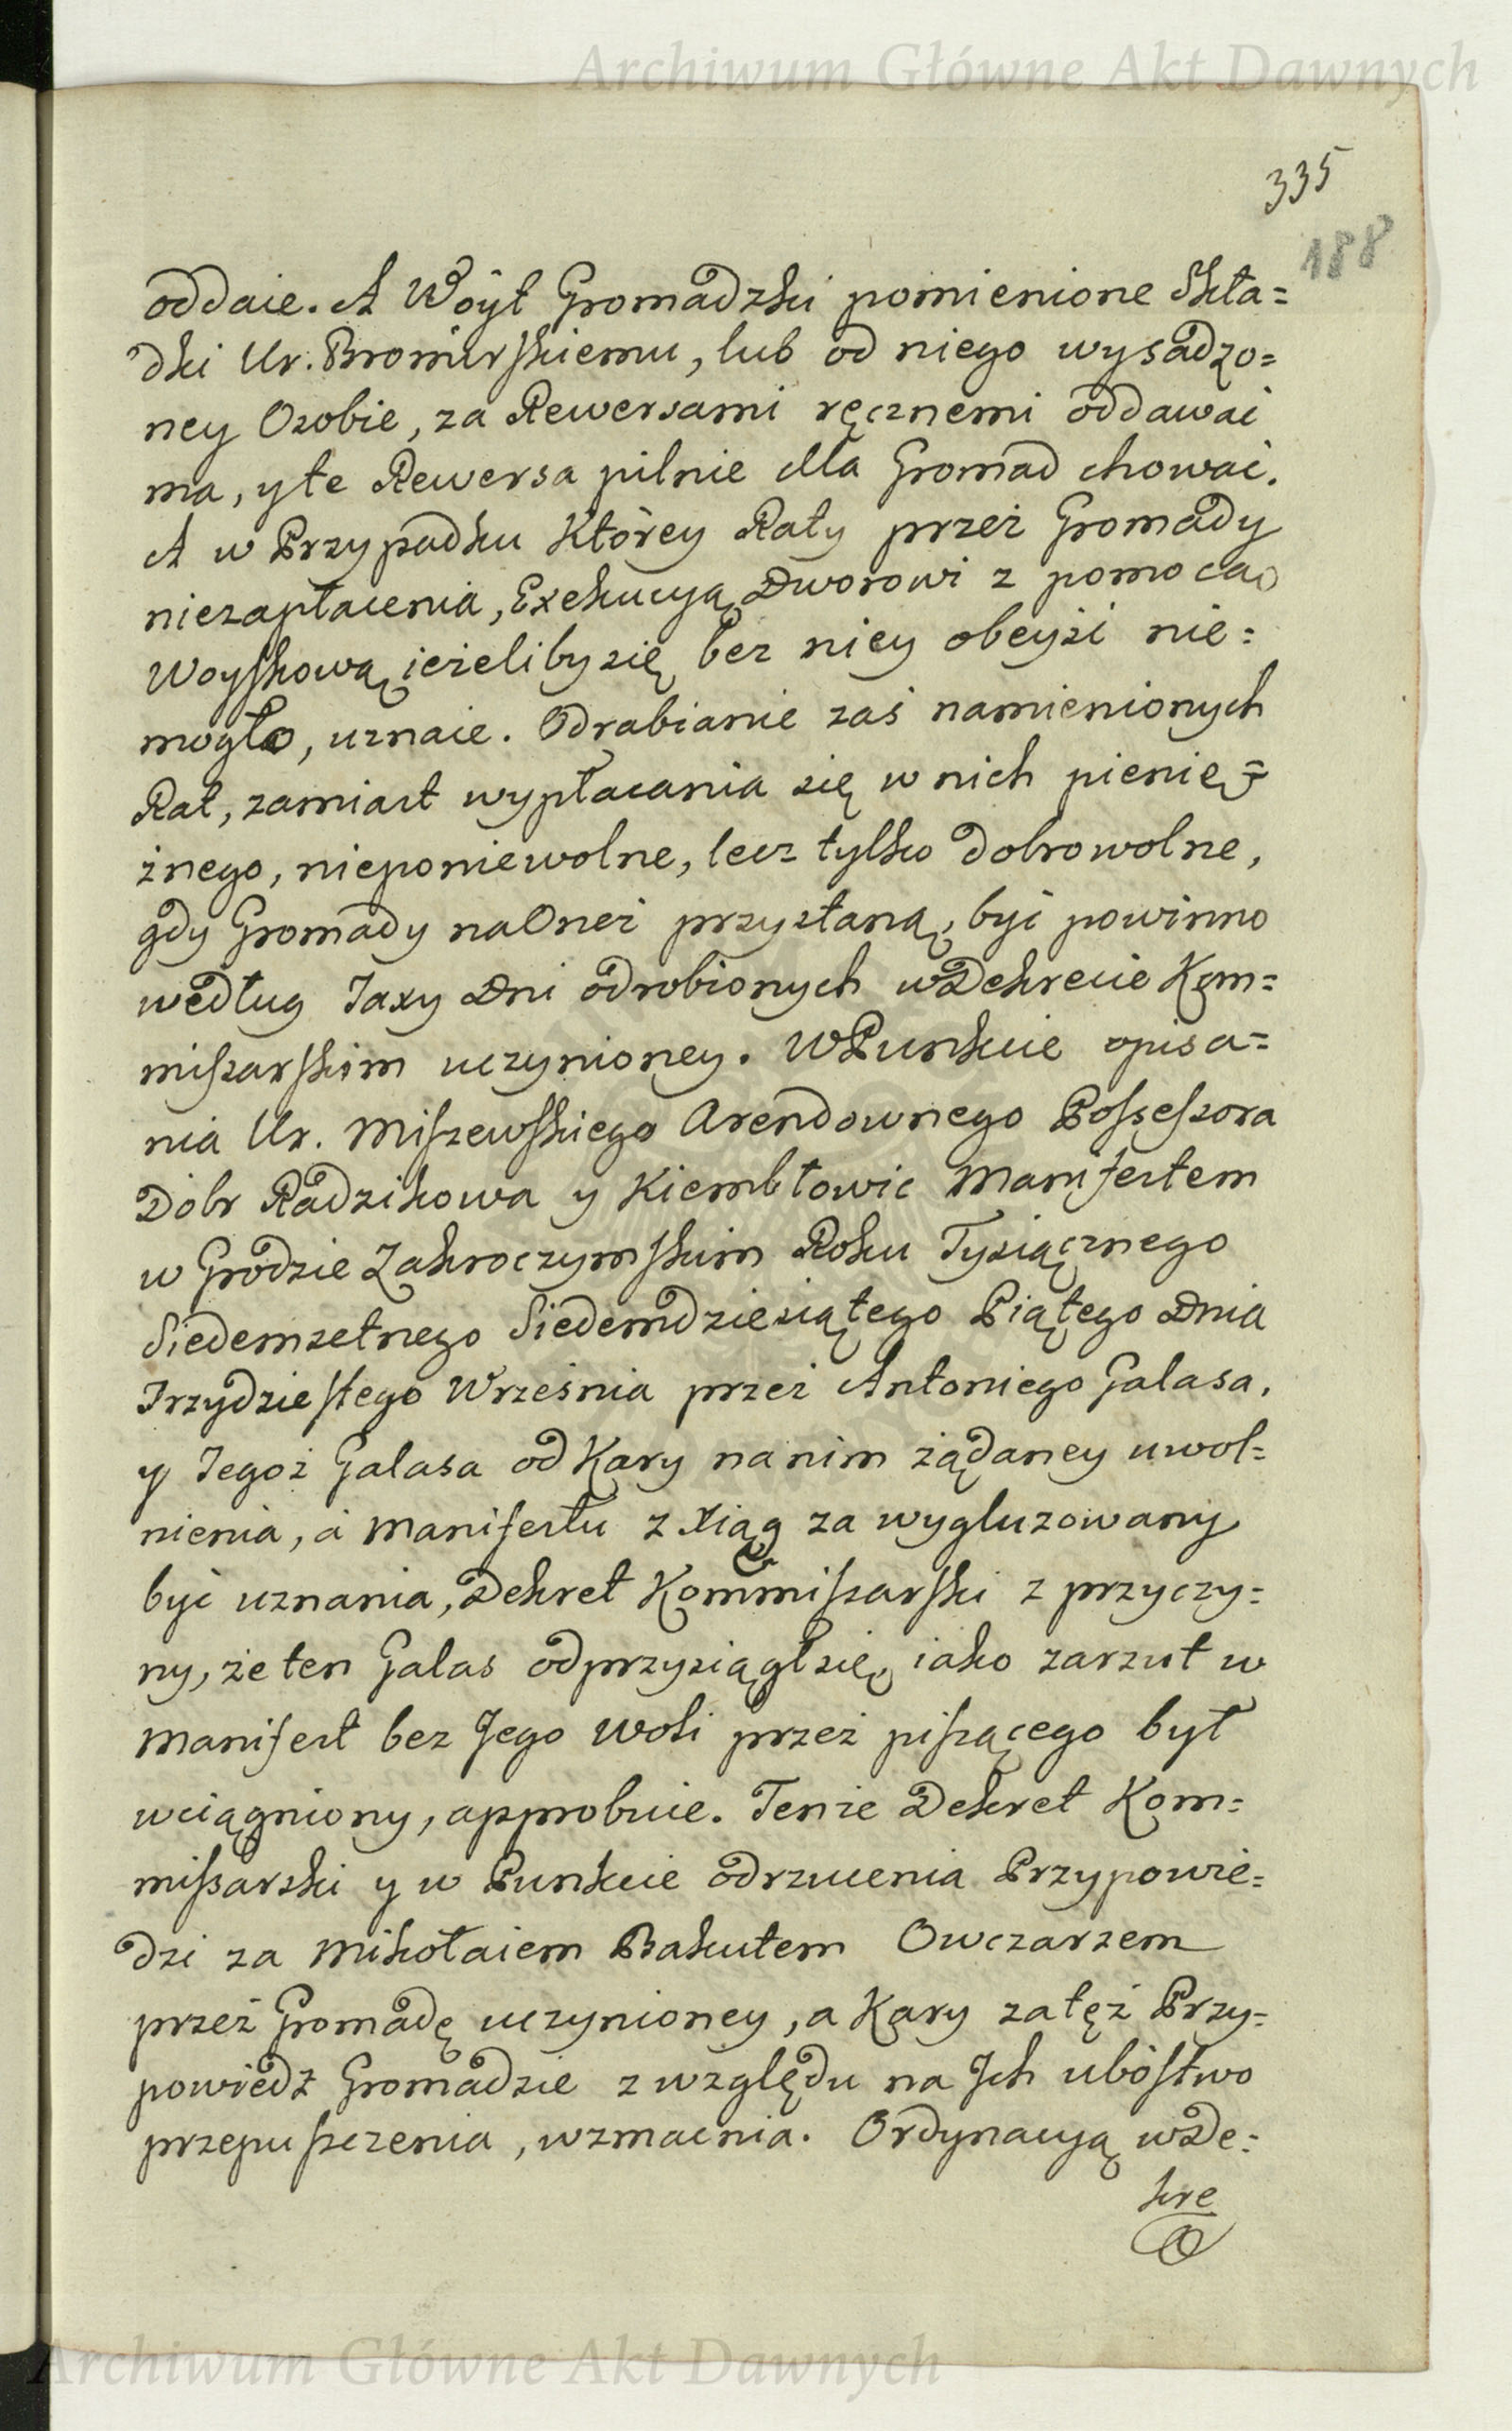 Archiwum Główne Akt Dawnych
335
188
oddaie. A Wóyt Gromadzki pomienione Skła=
dki Ur. Bromirskiemu, lub od niego wysadzo=
ney Osobie, za Rewersami ręcznemi oddawać
ma, y te Rewersa pilnie dla Gromad chować.
A w Przypadku Którey Raty przez Gromady
niezapłacenia, Exekucyą Dworowi z pomocą
Woyskową ieżeliby się bez niey obeyść nie=
mogło, uznaie. Odrabianie zaś namienionych
Rat, zamiast wypłacania się w nich pienię=
żnego, nieponiewolne, lecz tylko dobrowolne,
gdy Gromady na Oneż przystaną, być powinno
według Taxy Dni odrobionych w Dekrecie Kom=
missarskim uczynioney. W Punkcie opisa=
nia Ur. Miszewskiego Arendownego Possessora
Dóbr Radzikowa y Kiembłowic Manifestem
w Grodzie Zakroczymskim Roku Tysiącznego
Siedemsetnego Siedemdziesiątego Piątego Dnia
Trzydziestego Września przez Antoniego Galasa,
y Tegoż Galasa od Kary na nim żądaney uwol=
nienia, a Manifestu z Xiąg za wygluzowany
być uznania, Dekret Kommissarski z przyczy=
ny, że ten Galas odprzysiągł się, iako zarzut w
Manifest bez Jego woli przez piszącego był
wciągniony, approbuie. Tenże Dekret Kom=
missarski y w Punkcie odrzucenia Przypowie=
dzi za Mikołaiem Bakutem Owczarzem
przez Gromadę uczynioney, a Kary za tęż Przy=
powiedz Gromadzie z względu na Jch ubóstwo
przepuszczenia, wzmacnia. Ordynacyą w De=
kre
Archiwum Główne Akt Dawnych